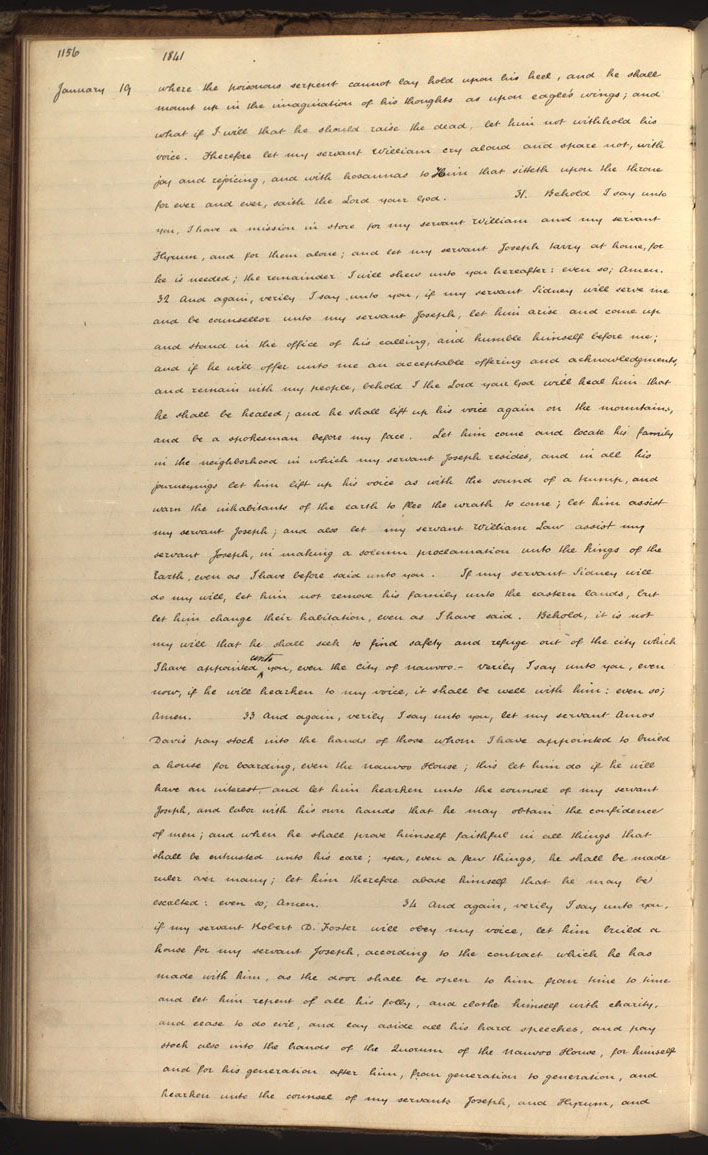 1156 1841
January 19 where the poisonous serpent cannot lay hold upon his heel, and he shall
mount up in the imagination of his thoughts as upon eagle's wings; and
what if I will that he should raise the dead, let him not withhold his
voice. Therefore let my servant William cry aloud and spare not, with
joy and rejoicing, and with hosannas to Him that sitteth upon the throne
for ever and ever, saith the Lord your God. 31. Behold I say unto
you, I have a mission in store for my servant William and my servant
Hyrum, and for them alone; and let my servant Joseph tarry at home, for
he is needed; the remainder I will shew unto you hereafter: even so; Amen.
32 And again, verily I say unto you, if my servant Sidney will serve me
and be counsellor unto my servant Joseph, let him arise and come up
and stand in the office of his calling, and humble himself before me;
and if he will offer unto me an acceptable offering and acknowledgments,
and remain with my people, behold I the Lord your God will heal him that
he shall be healed; and he shall lift up his voice again on the mountains,
and be a spokesman before my face. Let him come and locate his family
in the neighborhood in which my servant Joseph resides, and in all his
journeyings let him lift up his voice as with the sound of a trump, and
warn the inhabitants of the earth to flee the wrath to come; let him assist
my servant Joseph; and also let my servant William Law assist my
servant Joseph, in making a solemn proclamation unto the Kings of the
Earth, even as I have before said unto you. If my servant Sidney will
do my will, let him not remove his family unto the eastern lands, but
let him change their habitation, even as I have said. Behold, it is not
my will that he shall seek to find safety and refuge out of the city which
I have appointed unto you, even the City of Nauvoo.- Verily I say unto you, even
now, if he will hearken to my voice, it shall be well with him: even so;
Amen. 33 And again, verily I say unto you, let my servant Amos
Davis pay stock into the hands of those whom I have appointed to build
a house for boarding, even the Nauvoo House; this let him do if he will
have an interest and let him hearken unto the counsel of my servant
Joseph, and labor with his own hands that he may obtain the confidence
of men; and when he shall prove himself faithful in all things that
shall be entrusted unto his care; yea, even a few things, he shall be made
ruler over many; let him therefore abase himself that he may be
exalted: even so; Amen. 34 And again, verily I say unto you,
if my servant Robert D. Foster will obey my voice, let him build a
house for my servant Joseph, according to the contract which he has
made with him, as the door shall be open to him from time to time
and let him repent of all his folly, and clothe himself with charity,
and cease to do evil, and lay aside all his hard speeches, and pay
stock also into the hands of the Quorum of the Nauvoo House, for himself
and for his generation after him, from generation to generation, and
hearken unto the counsel of my servants Joseph, and Hyrum, and